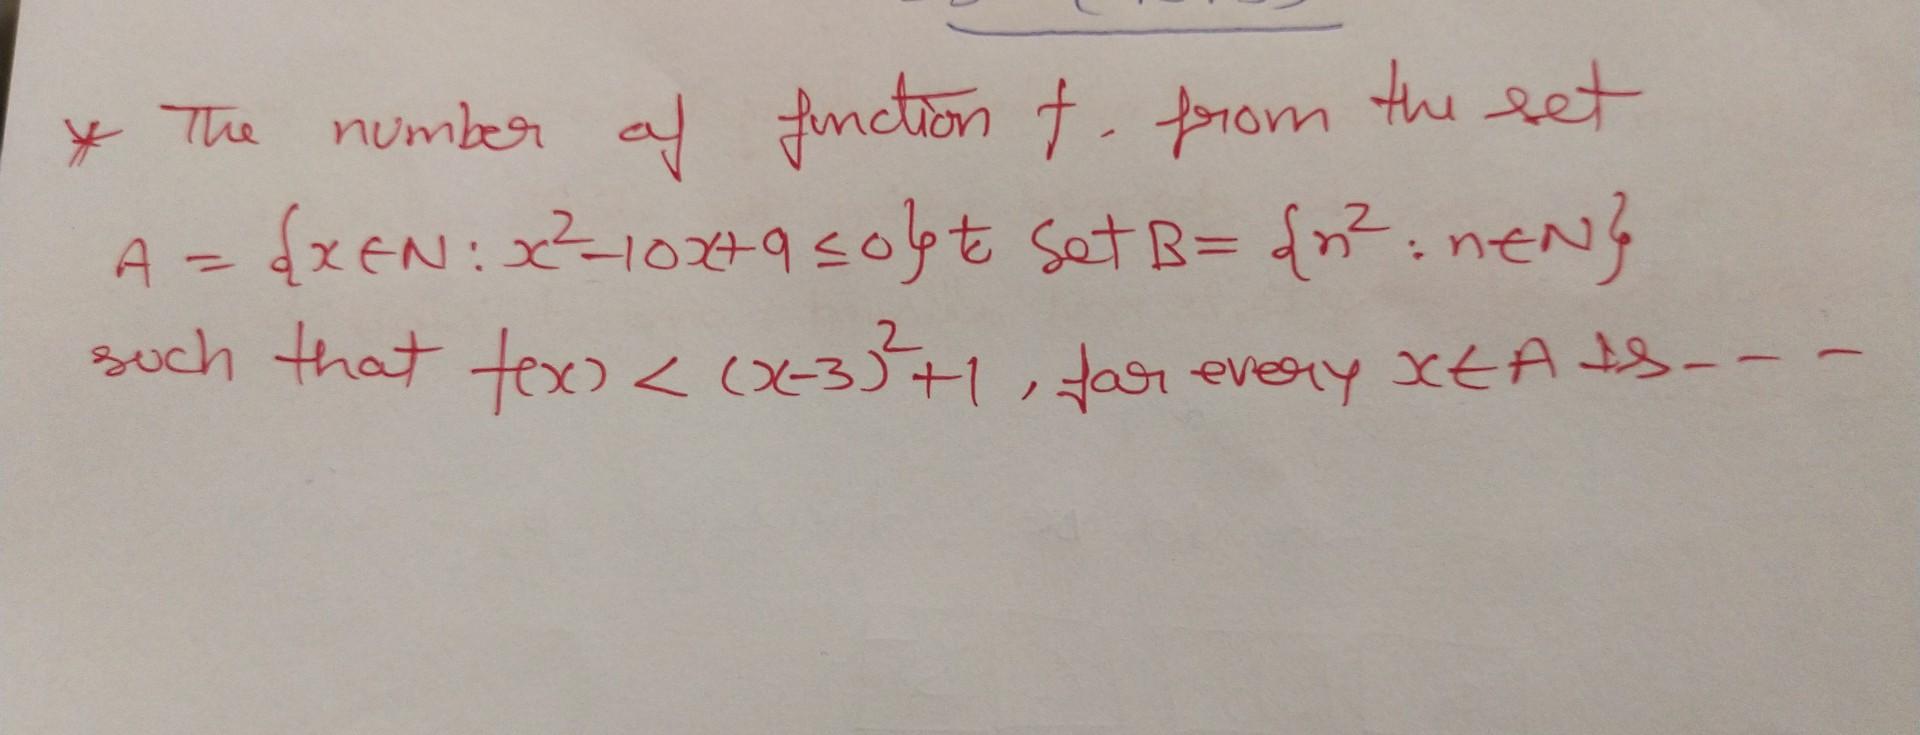 * The number of function f. from the set
A = {x∈N: x²-10x+9≤0} to Set B= {n² : n∈N}
such that f(x) < (x-3)²+1, for every x∈A is - - -